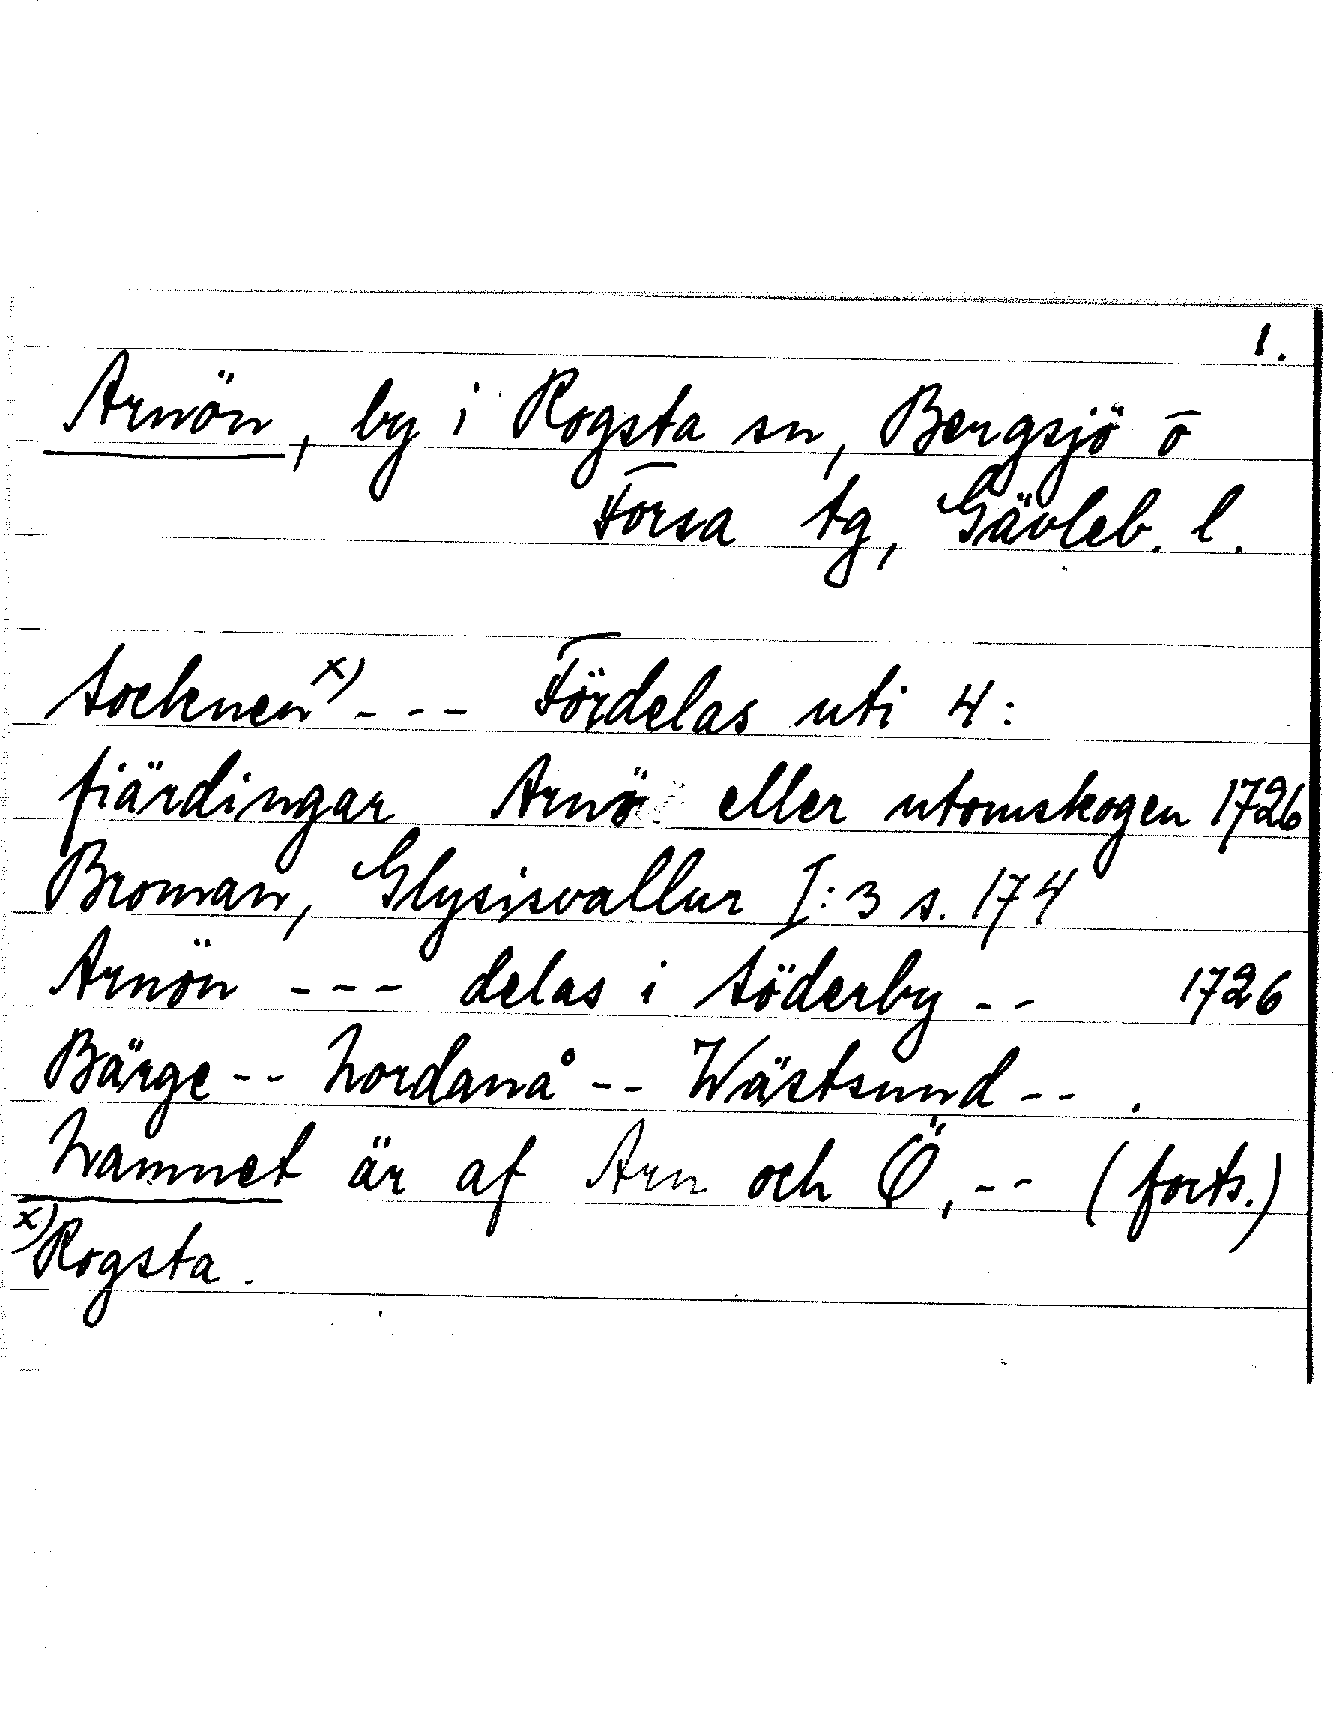 1.
Arnön, by i Rogsta sn, Bergsjö o
Forsa tg, Gävleb. l.
Socknen x) - - - Fördelas uti 4:
fiärdingar Arnö eller utomskogen 1726
Broman, Glysisvallur I:3 s. 174
Arnön - - - delas i Söderby - - 1726
Bärge - - Nordanå - - Wästsund - - .
Namnet är af Arn och Ö, - - (forts.)
x) Rogsta.